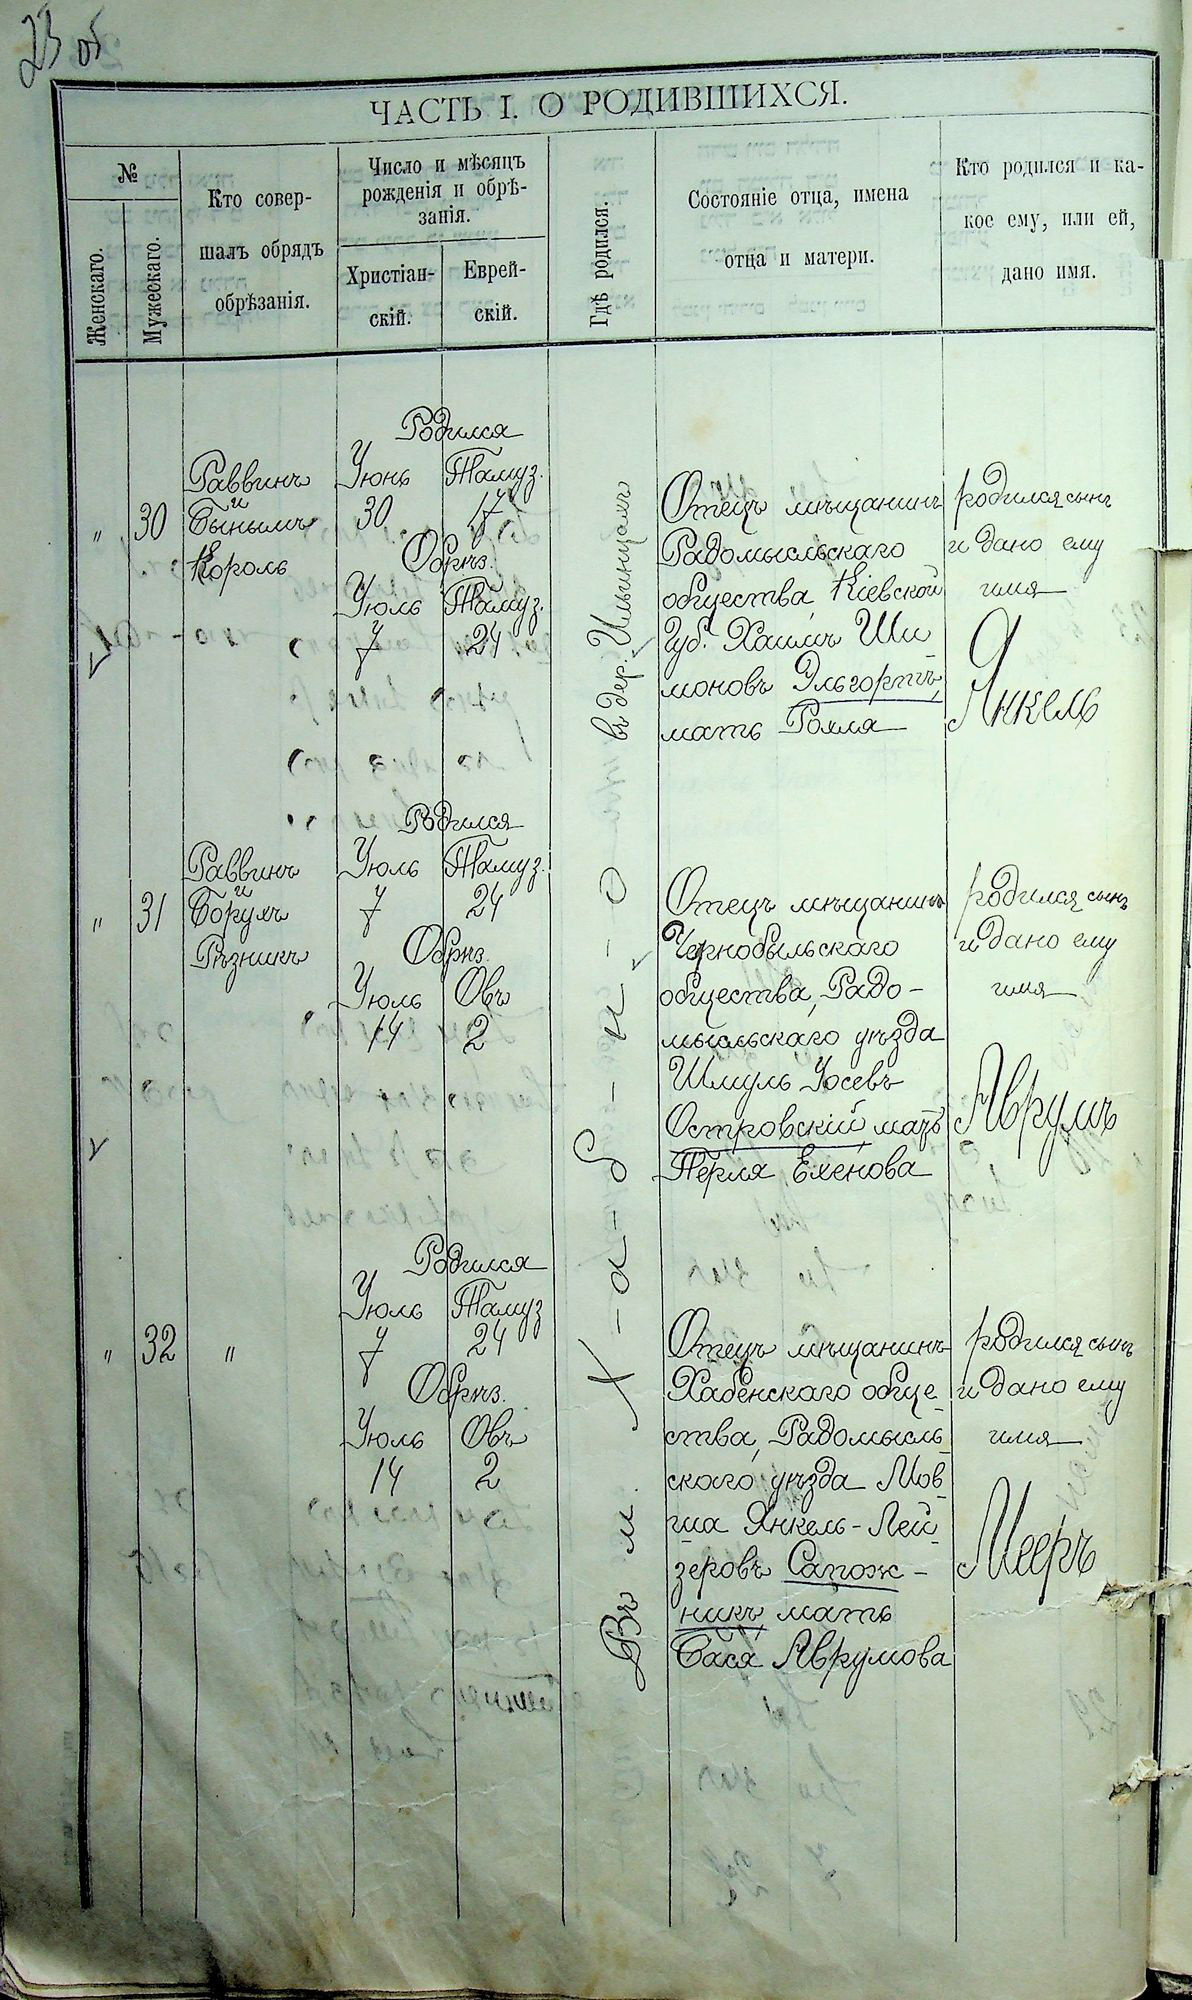 23 об
ЧАСТЬ I. О РОДИВШИХСЯ.
№
Женскаго.
Мужескаго.
Кто совер-
шалъ обрядъ
обрѣзанія.
Число и мѣсяцъ
рожденія и обрѣ-
занія.
Христіан-
скій.
Еврей-
скій.
Гдѣ родился.
Состояніе отца, имена
отца и матери.
Кто родился и ка-
кое ему, или ей,
дано имя.
"
30
Раввинъ
и
Король
Родился
Іюнь Тамуз.
30 17
Обрѣз.
Іюль Тамуз.
7 24
въ дер. Ильинцахъ
Отецъ мѣщанинъ
Радомысльскаго
общества, Кіевской
Губ. Хаимъ Ши-
моновъ Эльгортъ,
мать Рохля
родился сынъ
и дано ему
имя
Янкель
"
31
Раввинъ
и
Борухъ
Рѣзникъ
Родился
Іюль Тамуз.
7 24
Обрѣз.
Іюль Овъ
14 2
Отецъ мѣщанинъ
Чернобыльскаго
общества, Радо-
мысльскаго уѣзда
Шмуль Іосевъ
Островскій, мать
Перля Ехенова
родился сынъ
и дано ему
имя
Аврумъ
"
32
"
Родился
Іюль Тамуз
7 24
Обрѣз.
Іюль Овъ
14 2
Въ м. Х-а-б-н-о
Отецъ мѣщанинъ
Хабенскаго обще-
ства, Радомысль-
скаго уѣзда Мов-
ша Янкель-Лей-
зеровъ Сапож-
никъ, мать
Бася Аврумова
родился сынъ
и дано ему
имя
Мееръ